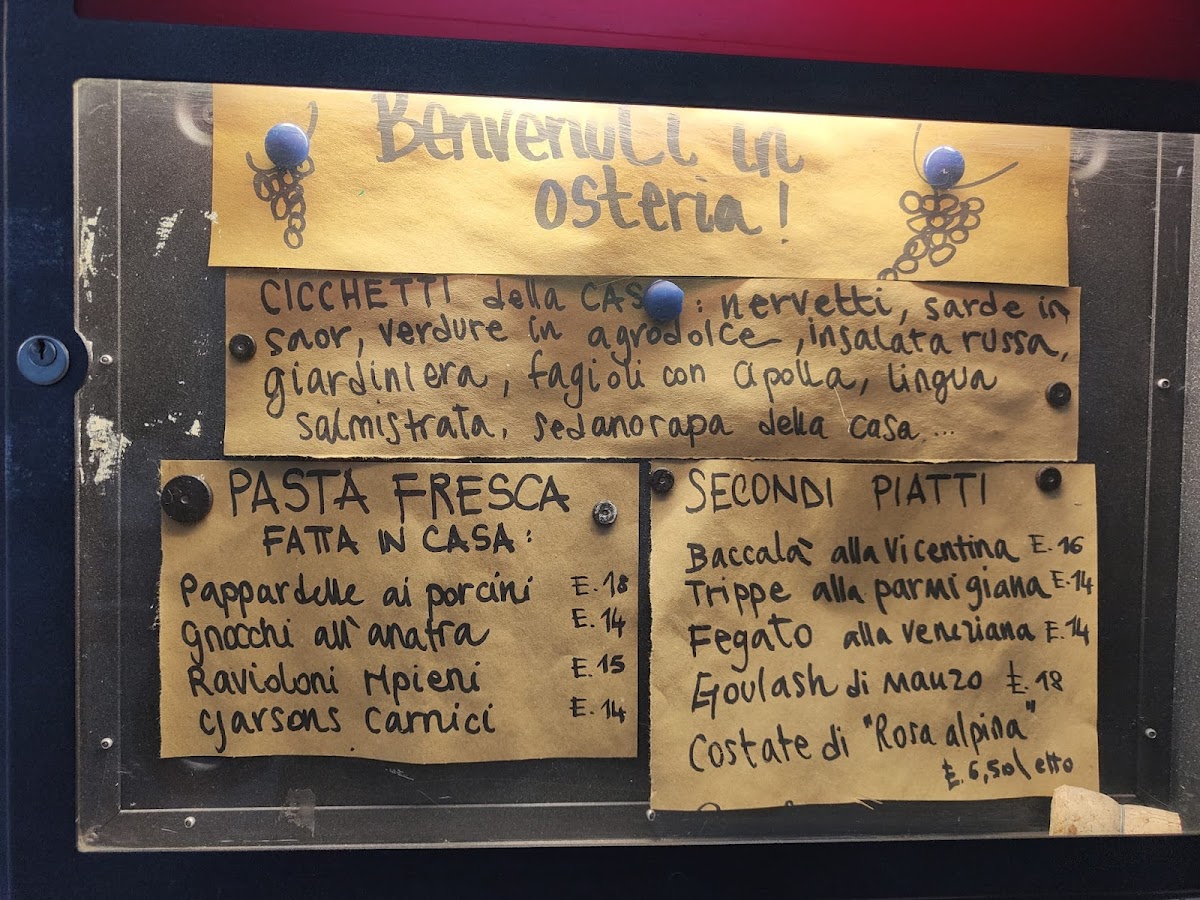 Benvenuti in
osteria!
CICCHETTI della CAS : nervetti, sarde in
saor, verdure in agrodolce, insalata russa,
giardiniera, fagioli con cipolla, lingua
salmistrata, sedanorapa della casa...
PASTA FRESCA
FATTA IN CASA:
Pappardelle ai porcini E. 18
Gnocchi all'anatra E. 14
Ravioloni ripieni E. 15
Cjarsons Carnici E. 14
SECONDI PIATTI
Baccalà alla Vicentina E. 16
Trippe alla parmigiana E. 14
Fegato alla veneziana E. 14
Goulash di manzo E. 18
Costate di "Rosa alpina"
E. 6,50\ etto